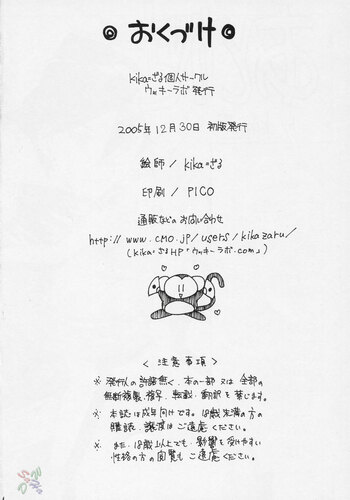 ◎おくづけ◎
kika=ざる個人サークル
ウッキーラボ発行
2005年12月30日 初版発行
絵師/kika=ざる
印刷/PICO
通販などのお問い合わせ
http://www.cmo.jp/users/kikazaru/
(kika=ざるHP・ウッキーラボ.com」)
<注意事項>
※ 発行人の許諾無く、本の一部又は全部の
無断複製、複写、転載、翻訳を禁じます。
※ 本誌は成年向けです。18歳未満の方の
購読、譲渡はご遠慮ください。
※ また、18歳以上でも、影響を受けやすい
性格の方の閲覧もご遠慮ください。